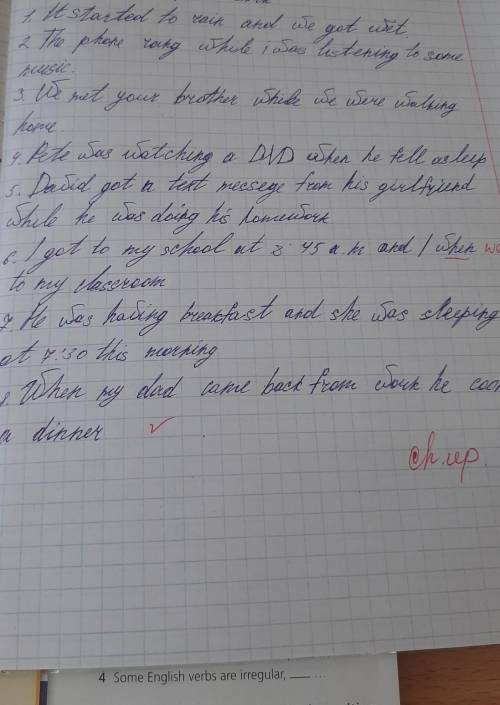 1. It started to rain and we got wet.
2. The phone rang while i was listening to some
music.
3. We met your brother while we were walking
home.
4. Pete was watching a DVD when he fell asleep
5. David got a text messege from his girlfriend
while he was doing his homework
6. I got to my school at 8:45 a.m and I when
to my classroom
7. He was having breakfast and she was sleeping
at 7:30 this morning
8. When my dad came back from work he
a dinner
ch. up.
4 Some English verbs are irregular, ___ ...